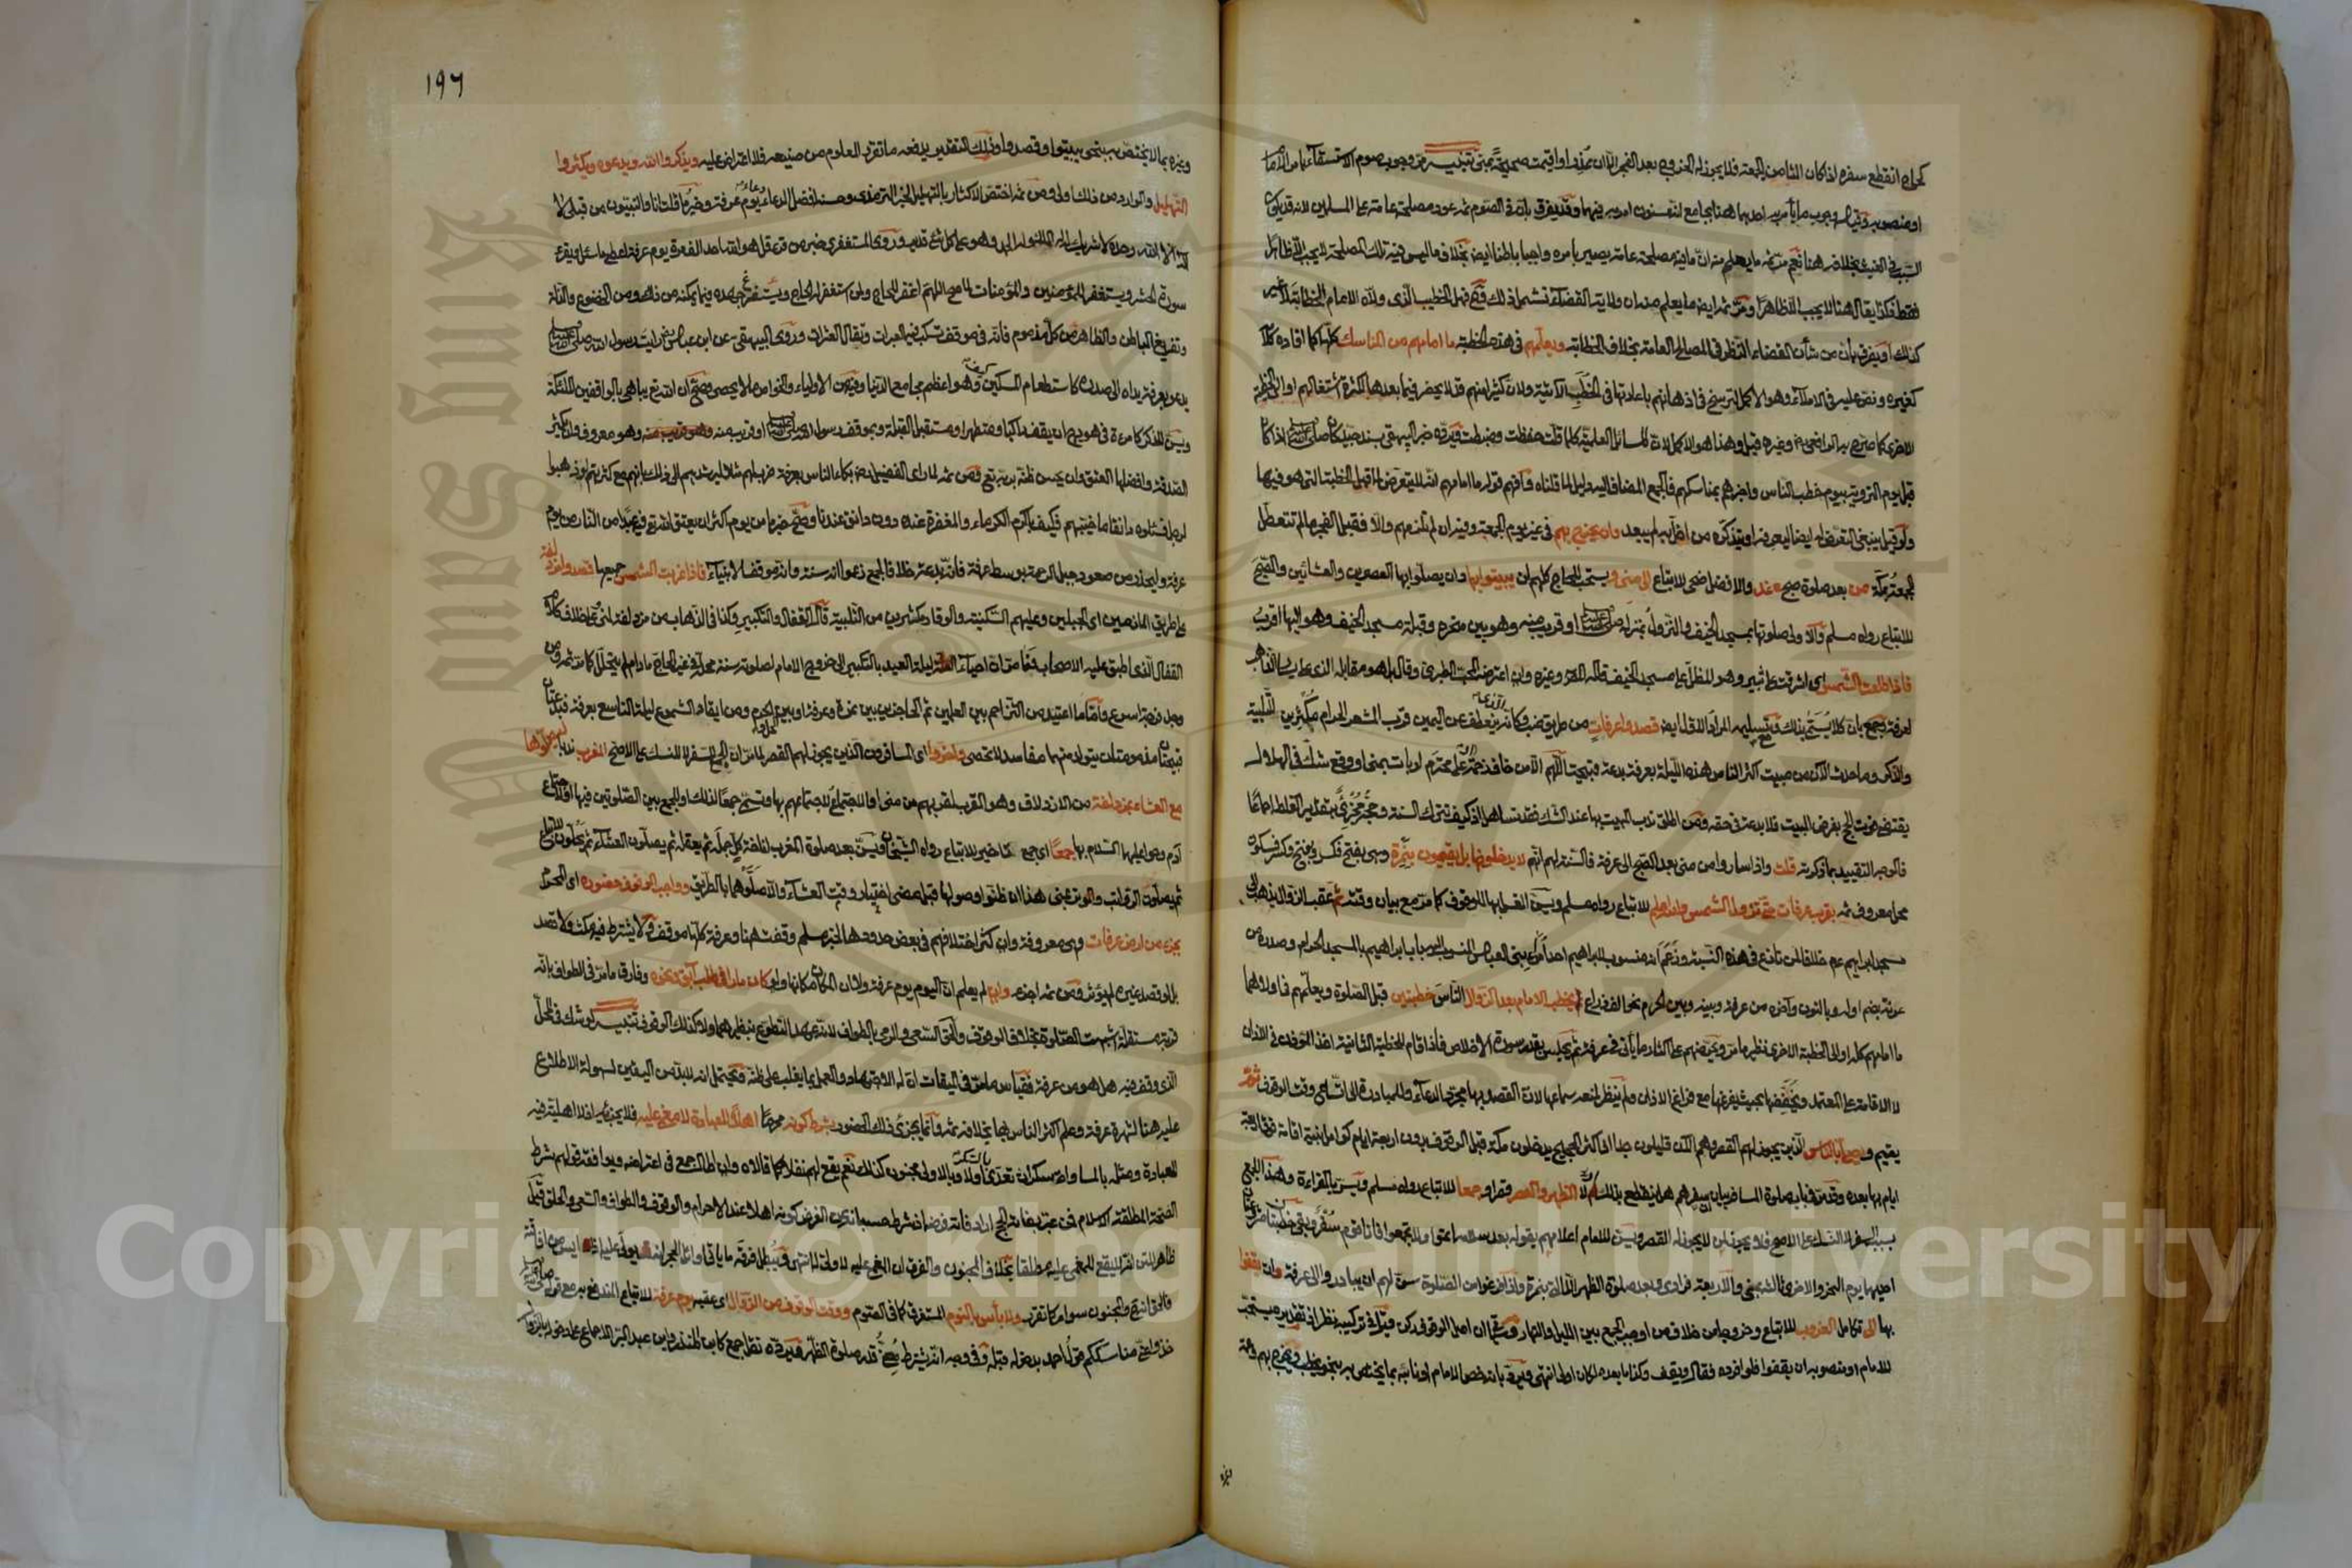 كمحله انقطع سفره اذا كان الثامن الجمعة فلا يجوز له الخروج بعد الفجر الا ان
او منصوبه وجوب ما يأمر به احدهما هنا بجامع
السبب في الغيث بخلافه هنا نعم مر ثمه ما يعلم منه ان ما فيه مصلحة عامة يصير بأمره واجبا باطنا ايضا بخلاف ما ليس فيه تلك المصلحة لا يجب الا ظاهرا
فقط فكذا يقال هنا لا يجب الا ظاهرا ومر ثمه ايضا ما يعلم منه ان ولاية القضاء تشمل ذلك فهل الخطيب الذي ولاه الامام الخطابة لا غير
كذلك او يفرق بأن من شأن القضاء النظر في المصالح العامة بخلاف الخطابة ويعلمهم في هذه الخطبة ما امامهم من المناسك كلها كما افاده كلامه
كغيره ونص عليه في الاملاء وهو الاكمل ليرسخ في اذهانهم باعادتها في الخطب الآتية ولان كثيرا منهم قد لا يحضر فيما بعدها لكثرة اشتغالهم او الى الخطبة
الاخرى كما صرح به الرافعي وغيره قيل وهذا هو الاكمل لان المسائل العلمية كلما قلت حفظت وضبطت ويرده خبر البيهقي بسند جيد كان صلى الله عليه وسلم اذا كان
قبل يوم التروية بيوم خطب الناس واخبرهم بمناسكهم فالجمع المضاف اليه دليل لما قلناه وافهم قوله ما امامهم انه لا يتعرض لما قبل الخطبة التي هو فيها
ولو قيل ينبغي التعرض له ايضا ليعرفه او يتذكره من اخل به لم يبعد وان يخرج بهم في غير يوم الجمعة وفيه ان لم تلزمهم والا فقبل الفجر ما لم تتعطل
الجمعة بمكة من بعد صلاة صبح غد والافضل ضحى للاتباع الى منى ويستحب للحاج كلهم ان يبيتوا بها وان يصلوا بها العصرين والعشائين والصبح
للاتباع رواه مسلم والاولى صلوتها بمسجد الخيف والنزول بمنزله صلى الله عليه وسلم او قريب منه وهو بين منحره وقبلة مسجد الخيف وهو اليها اقرب
فاذا طلعت الشمس اي اشرقت على ثبير وهو المطل على مسجد الخيف قاله المص وغيره وان اعترضه المحب الطبري وقال بل هو مقابله الذي على يسار الذاهب
لعرفة وجمع بأن كلا يسمى بذلك ومع تسليمه المراد الاول ايضا قصدوا عرفات من طريق ضب وكأنه الذي ينعطف عن اليمين قرب المشعر الحرام مكثرين التلبية
والذكر وما حدث الآن من مبيت اكثر الناس هذه الليلة بعرفة بدعة قبيحة اللهم الا من خاف زحمة او على محترم لو بات بمنى او وقع شك في الهلال
يقتضي فوت الحج بفرض المبيت فلا بدعة في حقه ومن اطلق ندب المبيت بها عند الشك فقد تساهل اذ كيف تترك السنة وحجه مجزئ بتقدير الغلط اجماعا
فالوجه التقييد بما ذكرته قلت واذا ساروا من منى بعد الصبح الى عرفة فالسنة لهم انهم لا يدخلونها بل يقيمون بنمرة وهي بفتح فكسر ويفتح وكسر فسكون
محل معروف ثم بقرب عرفات حتى تزول الشمس والله اعلم للاتباع رواه مسلم ويسن الغسل بها للوقوف كما مر مع بيان وقته ثم عقب الزوال يذهب الى
مسجد ابراهيم عم خلافا لمن نازع في هذه النسبة وزعم انه منسوب لابراهيم احد امراء بني العباس المنسوب اليه باب ابراهيم بالمسجد الحرام وصدره من
عرنة بضم اوله وبالنون وآخره من عرفة وبينه وبين الحرم نحو الف ذراع ثم يخطب الامام بعد الزوال الناس خطبتين قبل الصلوة ويعلمهم في اولاهما
ما امامهم كله او الى الخطبة الاخرى نظير ما مر ويحرضهم على اكثار ما يأتي في عرفة ثم يجلس بقدر سورة الاخلاص فاذا قام للخطبة الثانية اخذ المؤذن في الاذان
لا الاقامة على المعتمد ويخففها بحيث يفرغ منها مع فراغ الاذان ولم ينظر لمنعه سماعها لان القصد بها مجرد الدعاء وللمبادرة الى اتساع وقت الوقوف ثم
يقيم ويصلي بالناس الذين يجوز لهم القصر وهم الآن قليلون جدا اذ اكثر الحجيج يدخلون مكة قبل الوقوف بدون اربعة ايام كوامل بنية اقامة فوق اربعة
ايام بها بعده وقد مر في باب صلوة المسافر بيان سفرهم هل ينقطع بذلك ام لا الظهر والعصر قصرا وجمعا للاتباع رواه مسلم ويسر بالقراءة وهذا الجمع
بسبب السفر لا النسك على الاصح فلا يجوز لمن لا يجوز له القصر ويسن للامام اعلامهم بقوله بعد سلامه اتموا ولا تجمعوا فانا قوم سفر
احديهما يوم النحر والاخرى الثاني بمنى والاربعة فرادى وبعد صلوة الظهر الا التي بنمرة واذا فرغوا من الصلوة سن لهم ان يبادروا الى عرفة وان يقفوا
بها الى تكامل الغروب للاتباع وخروجا من خلاف من اوجب الجمع بين الليل والنهار اما اصل الوقوف فركن قيل في تركيبه نظر اذ تقديره يستحب
للامام او منصوبه ان يقفوا فلو افرده فقال ويقف وكذا ما بعده لكان اولى انتهى ويرد بأنه خص الامام او نائبه بما يختص به بنحو يخطب ويخرج بهم
وغيره
١٩٦
وغيره بما لا يختص به بنحو يبيتوا وقصدوا وذلك التقدير يدفعه ما تقرر المعلوم من صنيعه فلا اعتراض عليه ويذكروا الله ويدعوه ويكثروا
التهليل والوارد من ذلك اولى ومن ثمه اختص الاكثار بالتهليل لخبر الترمذي وحسنه افضل الدعاء دعاء يوم عرفة وخير ما قلت انا والنبيون من قبلي لا
اله الا الله وحده لا شريك له له الملك وله الحمد وهو على كل شيء قدير وروى المستغفري خبر من قرأ قل هو الله احد الف مرة يوم عرفة اعطي ما سئل ويقرء
سورة الحشر ويستغفر للمؤمنين والمؤمنات لما صح اللهم اغفر للحاج ولمن استغفر له الحاج ويستفرغ جهده فيما يمكنه من ذلك ومن الخضوع والذلة
وتفريغ الباطن والظاهر من كل مذموم فانه في موقف تسكب فيه العبرات وتقال العثرات وروى البيهقي عن ابن عباس رض رأيت رسول الله صلى الله عليه وسلم
يدعو بعرفة يداه الى صدره كاستطعام المسكين كيف وهو اعظم مجامع الدنيا وفيه من الاولياء والخواص ما لا يحصى وصح ان الله تع يباهي بالواقفين الملئكة
ويسن للذكر كامرءة في هودج ان يقف راكبا ومتطهرا ومستقبل القبلة وبموقف رسول الله صلى الله عليه وسلم او قريب منه وهو معروف وان يكثر
الصدقة وافضلها العتق وان يحسن ظنه بربه تع ومن ثمه لما رأى الفضيل رض بكاء الناس بعرفة ضرب لهم مثلا ليرشدهم الى ذلك بأنهم مع كثرتهم لو ذهبوا
لرجل فسئلوه دانقا ما خيبهم فكيف باكرم الكرماء والمغفرة عنده دون دانق عندنا وصح خبر ما من يوم اكثر ان يعتق الله تع فيه عبدا من النار من يوم
عرفة وليحذر من صعود جبل الرحمة بوسط عرفة فانه بدعة خلافا لجمع زعموا انه سنة وانه موقف الانبياء فاذا غربت الشمس جميعها قصدوا مزدلفة
على طريق المأزمين اي الجبلين وعليهم السكينة والوقار مكثرين من التلبية قال القفال والتكبير وكذا في الذهاب من مزدلفة لمنى
القفال الذي اطبق عليه الاصحاب ليلة العيد بالتكبير الى خروج الامام لصلوته سنة محله في غير الحاج ما دام لم يتحلل كما مر ثمه ومن
وجد فرجة اسرع واما ما اعتيد من التزاحم بين العلمين ثم الخاذين بين نمرة وعرفة او بين الحرم ومن ايقاد الشموع ليلة التاسع بعرفة فبدعتان
قبيحتان مذمومتان يتولد منهما مفاسد لا تحصى واخروا اي المسافرون الذين يجوز لهم القصر لما مر ان الجمع للسفر لا للنسك على الاصح المغرب ندبا ليصلوها
مع العشاء بمزدلفة من الازدلاف وهو القرب لقربهم من منى او الاجتماع لاجتماعهم بها وتسمى جمعا لذلك او للجمع بين الصلوتين فيها او لاجتماع
آدم وحوا عليهما السلام بها جمعا اي جمع تأخير للاتباع رواه الشيخان ويسن بعد صلوة المغرب اناخة كل جمله ثم يعقله ثم يصلون العشاء ثم يحلون للاتباع
ثم يصلون الرواتب والوتر بمنى هذا ان ظنوا وصولها قبل مضي اختيار وقت العشاء والا صلوهما بالطريق وواجب الوقوف حضوره اي المحرم
بجزء من ارض عرفات وهي معروفة وان كثر اختلافهم في بعض حدودها لخبر مسلم وقفت هنا وعرفة كلها موقف ولا يشترط فيه مكث ولا قصد
بل لو قصد غيره لم يؤثر ومن ثمه اجزء وان لم يعلم ان اليوم يوم عرفة ولا ان المكان مكانها ولو كان مارا في طلب آبق ونحوه وفارق ما مر في الطواف بأنه
قربة مستقلة اشبهت الصلوة بخلاف الوقوف والحق السعي والرمي بالطواف لانه عهد التطوع بنظيرهما ولا كذلك الوقوف تنبيه لو شك في المحل
الذي وقف فيه هل هو من عرفة فقياس ما مر في الميقات ان له الاجتهاد والعمل بما يغلب على ظنه ويحتمل انه لا بد من اليقين لسهولة الاطلاع
عليه هنا لشهرة عرفة وعلم اكثر الناس بها بخلافه ثمه وانما يجزئ ذلك الحضور بشرط كونه محرما اهلا للعبادة لا مغمى عليه فلا يجزئه اذ لا اهلية فيه
للعبادة ومثله بالمساواة سكران تعدى اولا وبالاولى مجنون كذلك نعم يقع لهم نفلا كما قالاه وان اطال جمع في اعتراضه ويوافقه قولهم شرط
الصحة المطلقة الاسلام فمن عبر بفاته الحج اراد فاته فرضه اذ شرط حسبانه من الفرض كونه اهلا عند الاحرام والوقوف والطواف والسعي والحلق قيل
ظاهر المتن انه لا يقع للمغمى عليه مطلقا بخلاف المجنون والفرق ان المغمى عليه لا ولي له انتهى ويبطل فرقه ما يأتي اوائل الحجر انه يولى عليه اذا ايس من افاقته
فالحق انه والمجنون سواء كما تقرر ولا بأس بالنوم المستغرق كما في الصوم ووقت الوقوف من الزوال اي عقبه يوم عرفة للاتباع المندفع به مع قوله صلى الله عليه وسلم
خذوا عني مناسككم قول احمد بدخوله قبله وفي وجه انه يشترط مضي قدر صلوة الظهر ويرده نقل جمع كابن المنذر وابن عبد البر الاجماع على دخوله بالزوال